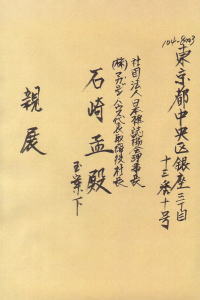 104-8003
東京都中央区銀座三丁目
十三番十号
社団法人日本雑誌協会理事長
(株)マガジンハウス代表取締役社長
石崎孟殿
玉案下
親展